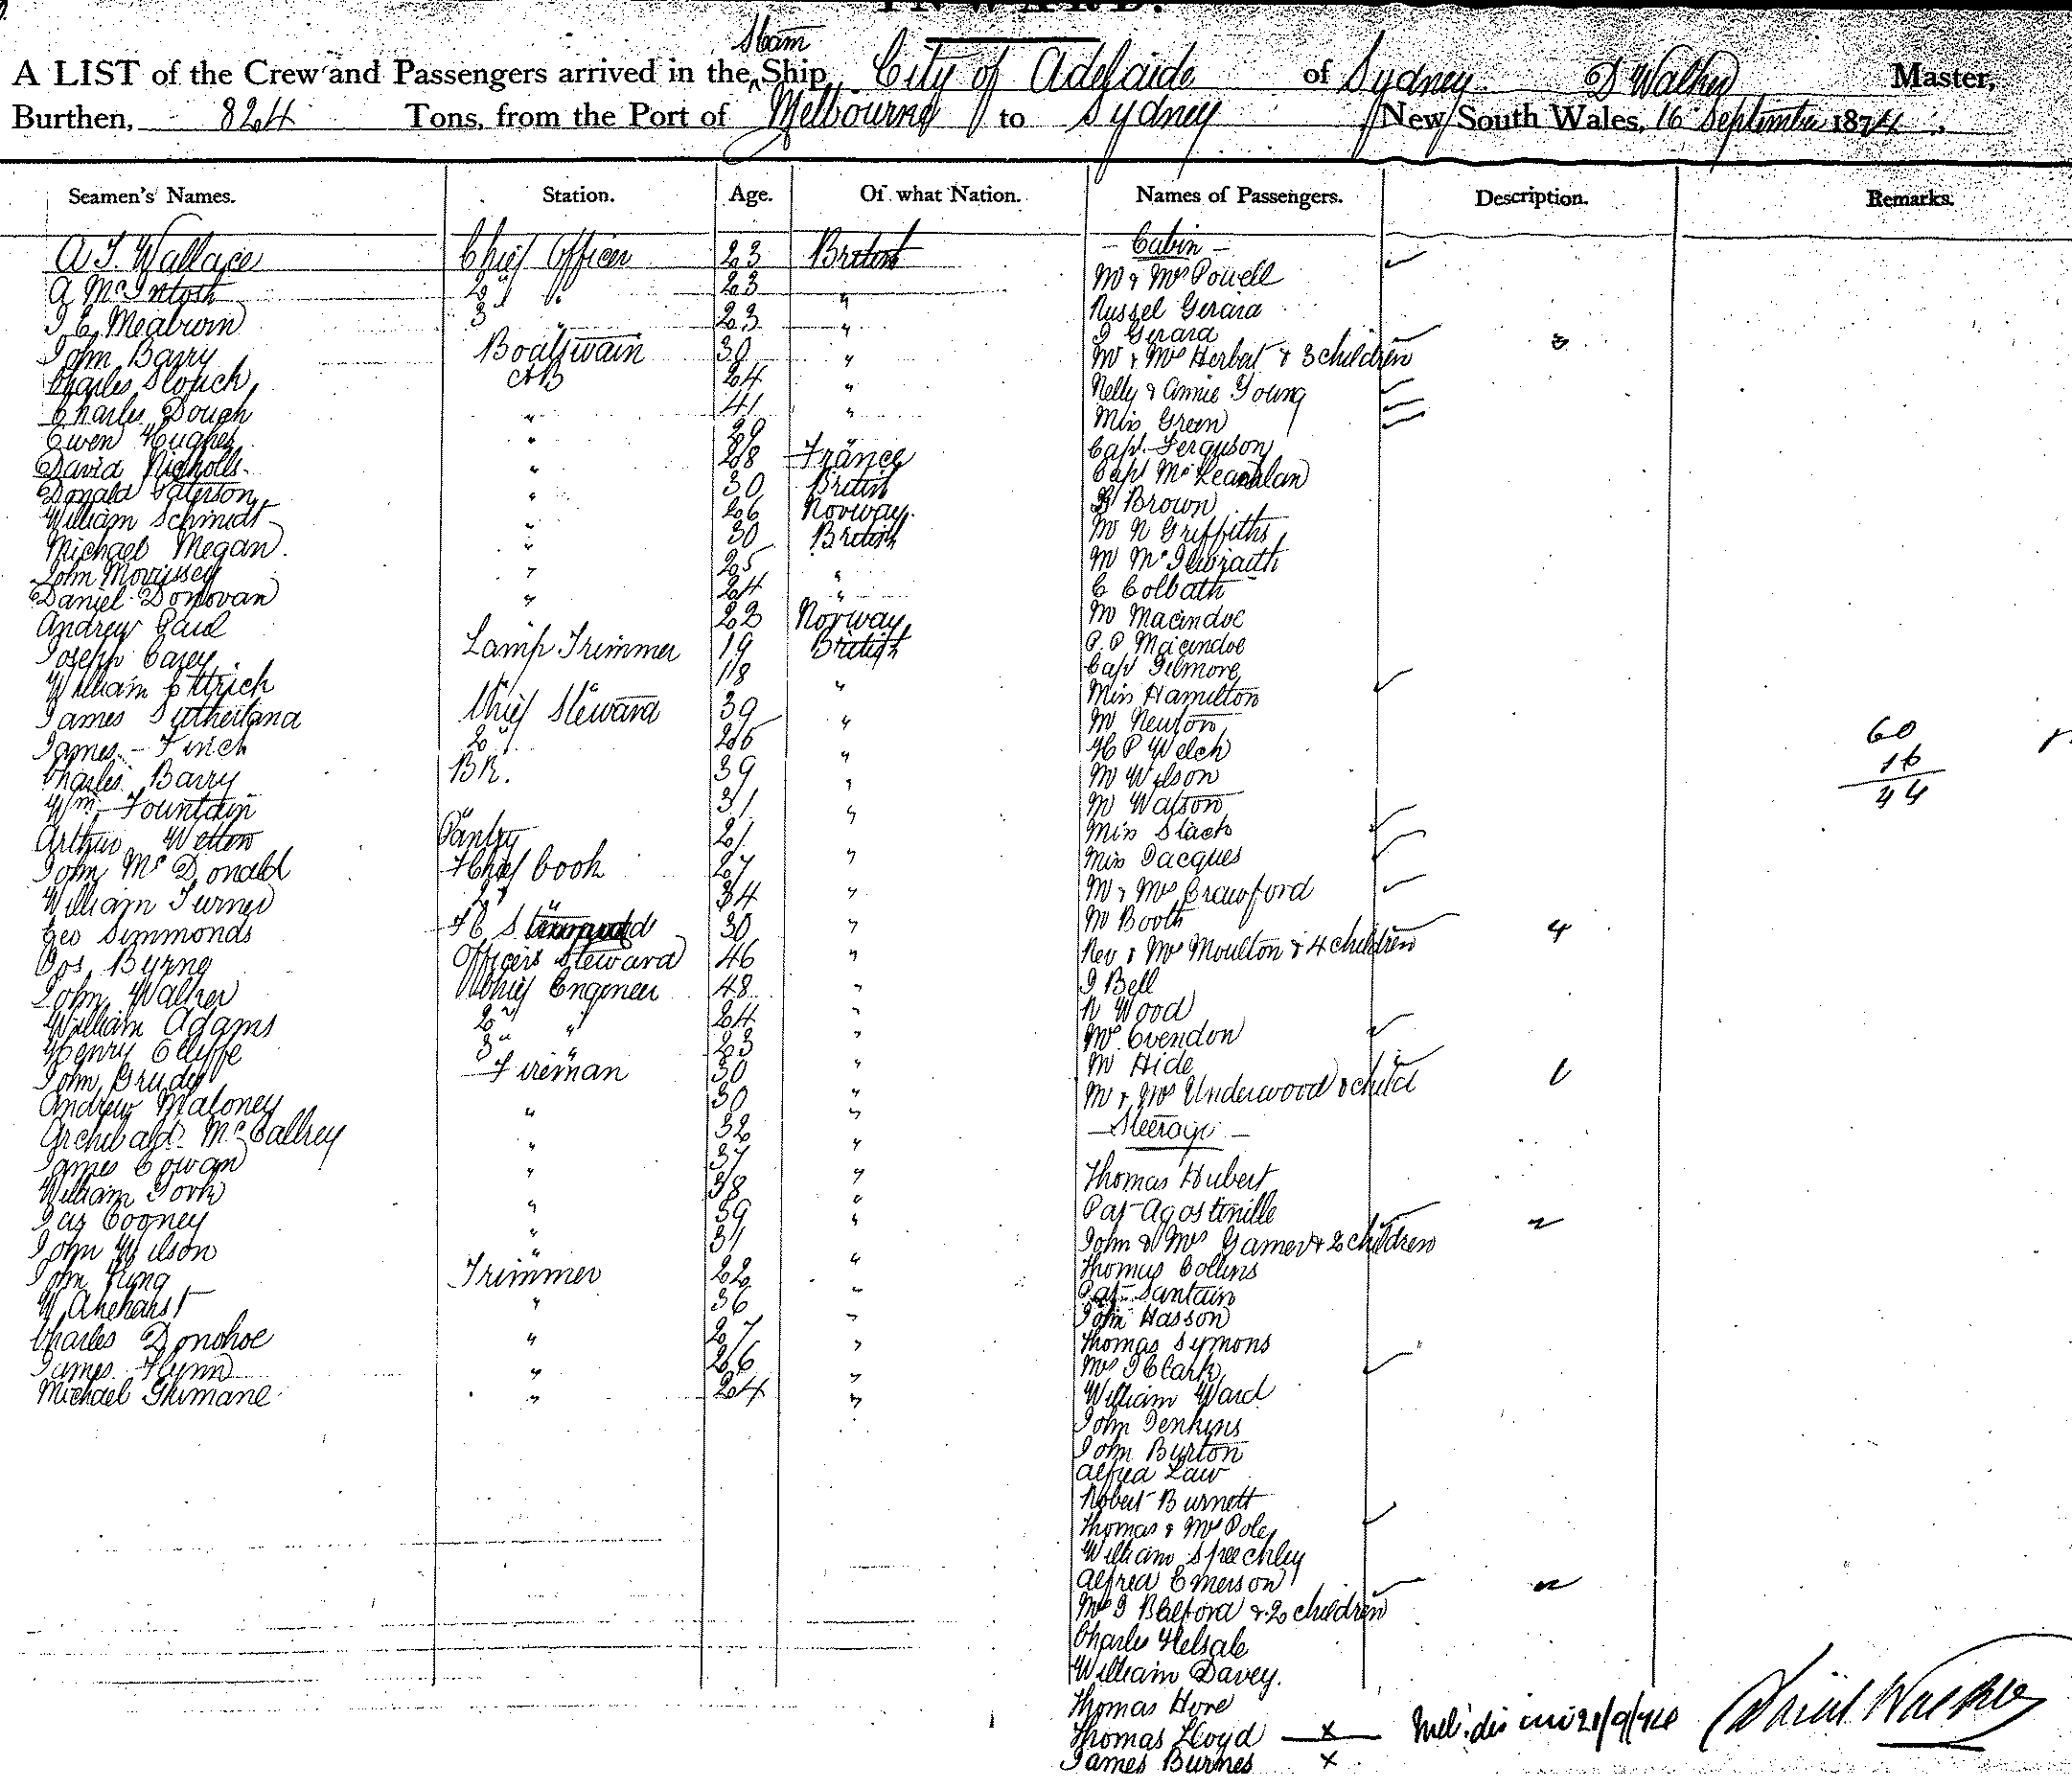 INWARD.
Steam
A LIST of the Crew and Passengers arrived in the Ship City of Adelaide of Sydney D Walker Master,
Burthen, 824 Tons, from the Port of Melbourne to Sydney New South Wales, 16 September 1874
Seamen's Names. Station. Age. Of what Nation. Names of Passengers. Description. Remarks.
A J Wallace Chief Officer 23 British
A McIntosh 2d " 23 "
J E Meaburn 3 " 23 "
John Barry Boatswain 30 "
Charles Slouch AB 24 "
Charles Dough " 41 "
Ewen Hughes " 29 "
David Nicholls " 28 France
Donald Paterson " 30 British
William Schmidt " 26 Norway
Michael Megan " 30 British
John Morrissey " 25 "
Daniel Donovan " 24 "
Andrew Paul " 22 Norway
Joseph Carey Lamp Trimmer 19 British
William Ettrich " " 18 "
James Sutherland Chief Steward 39 "
James Finch 2d " 26 "
Charles Barry BR. 39 "
Wm Fountain " 31 "
Arthur Welton Pantry 21 "
John McDonald Chief Cook 27 "
William Turner 2d " 34 "
Geo Simmonds F C Steward 30 "
Jos Byrne Officers Steward 46 "
John Walker Chief Engineer 48 "
William Adams 2d " 24 "
Henry Cliffe 3d " 23 "
John Grudy Fireman 30 "
Andrew Maloney " 30 "
Archibald McCallrey " 32 "
James Cowan " 37 "
William York " 38 "
Jas Cooney " 39 "
John Wilson " 31 "
John King Trimmer 22 "
W Akeharst " 36 "
Charles Donohoe " 27 "
James Flynn " 26 "
Michael Ghimane " 24 "
- Cabin -
Mr & Mrs Powell
Russel Gerard
J Gerard
Mr & Mrs Herbert & 3 children 3
Nelly & Annie Young
Miss Green
Capt Ferguson
Capt McLeachlan
G Brown
Mr N Griffiths
Mr McIlwraith
C Colbath
Mr Macindoe
P. P Macindoe
Capt Gilmore
Miss Hamilton
Mr Newton
H P Welch
Mr Wilson
Mr Watson
Miss Slack
Miss Jacques
Mr & Mrs Crawford
Mr Booth
Rev & Mrs Moulton & 4 children 4
J Bell
N Wood
Mrs Evendon
Mr Hide
Mr & Mrs Underwood & child 1
60
16
44
- Steerage -
Thomas Hubert
Pas Agostinille
John & Mrs Gamer & 2 children 2
Thomas Collins
Pas Santain
John Hasson
Thomas Symons
Mrs J Clark
William Ward
John Jenkins
John Burton
Alfred Law
Robert Burnett
Thomas & Mrs Pole
William Speechley
Alfred Emerson
Mrs J Balford & 2 children 2
Charles Helsale
William Davey.
Thomas Hore
Thomas Lloyd x
James Burnes x
21/9/74
David Walker